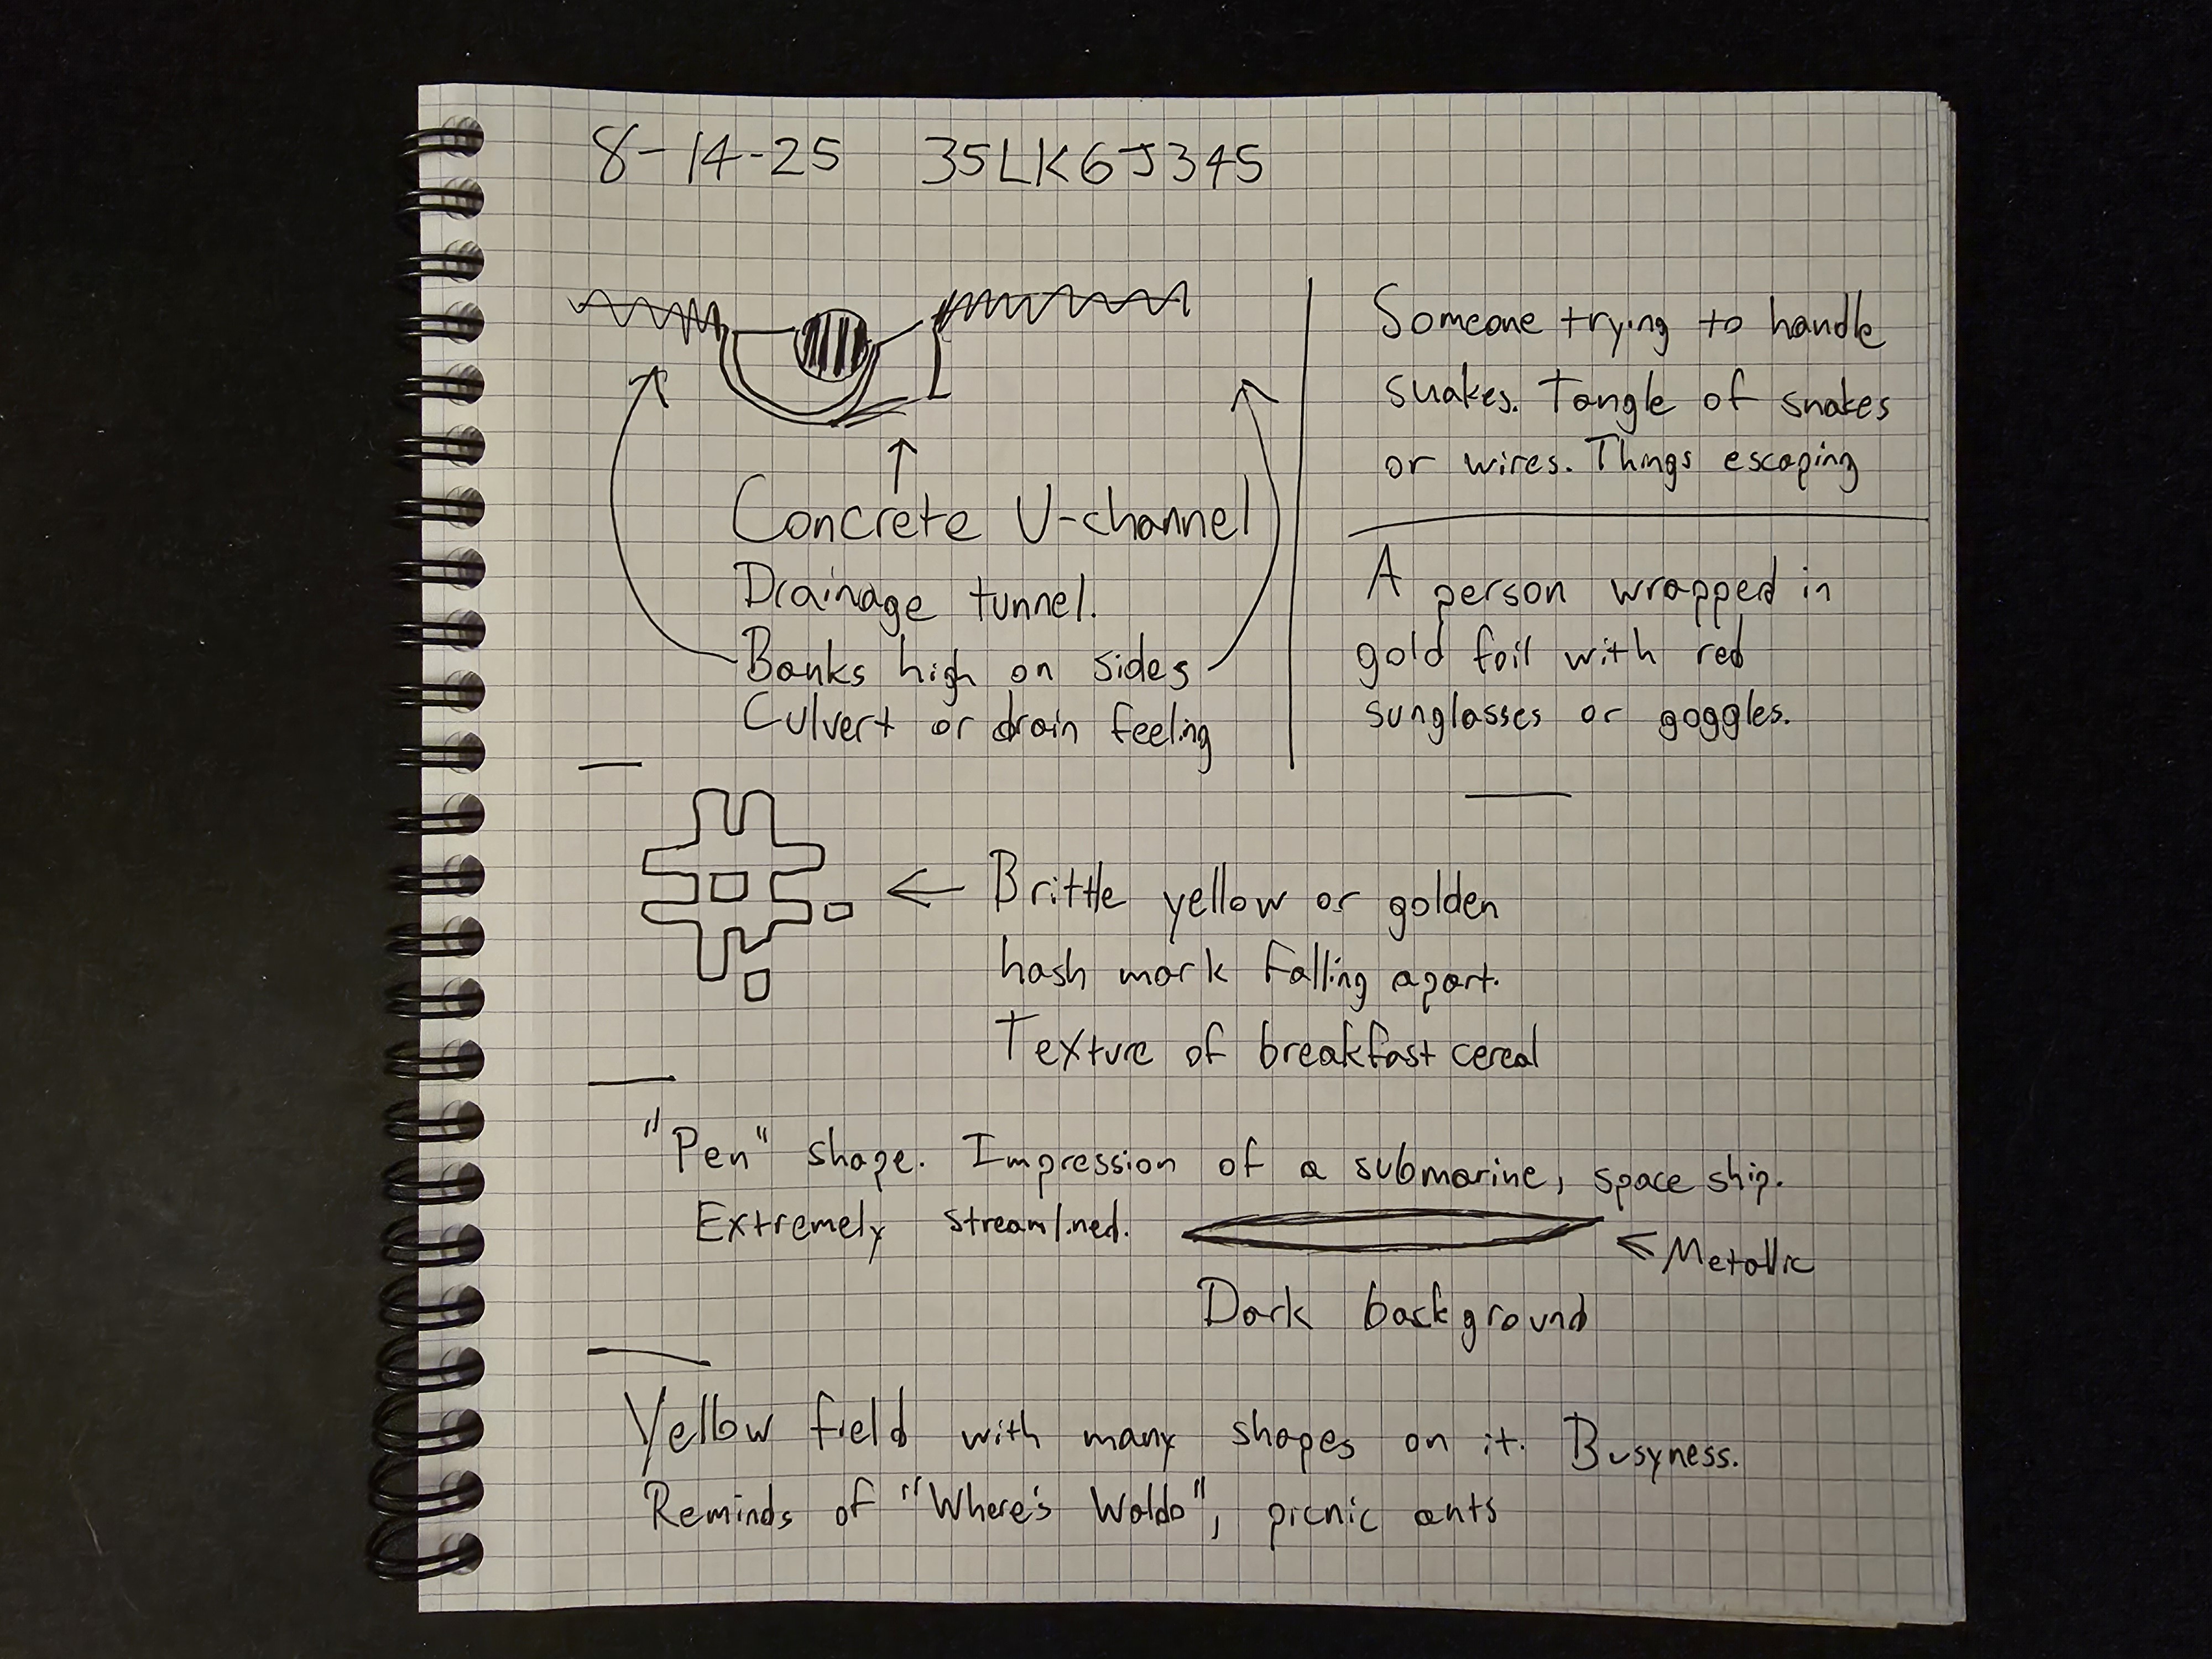 8-14-25 35LK6J345
Concrete U-channel
Drainage tunnel.
Banks high on sides
Culvert or drain feeling
Someone trying to handle
snakes. Tangle of snakes
or wires. Things escaping
A person wrapped in
gold foil with red
sunglasses or goggles.
Brittle yellow or golden
hash mark falling apart.
Texture of breakfast cereal
"Pen" shape. Impression of a submarine, space ship.
Extremely streamlined.
Metallic
Dark background
Yellow field with many shapes on it. Busyness.
Reminds of "Where's Waldo", picnic ants